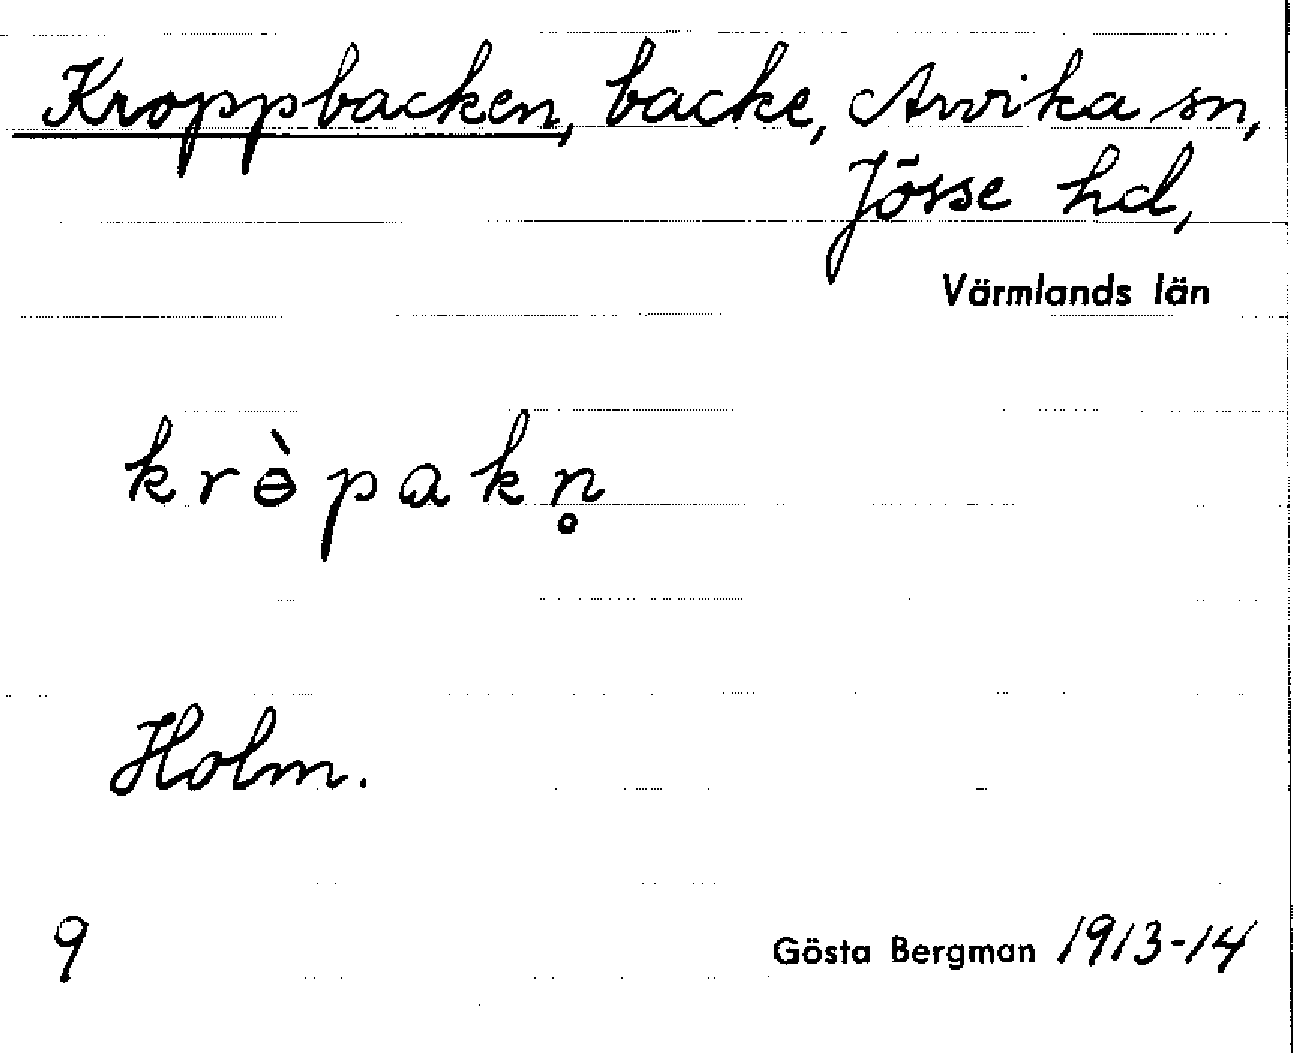 Kroppbacken, backe, Arvika sn,
Jösse hd,
Värmlands län
krɵ̀pakn̥
Holm.
9
Gösta Bergman 1913-14